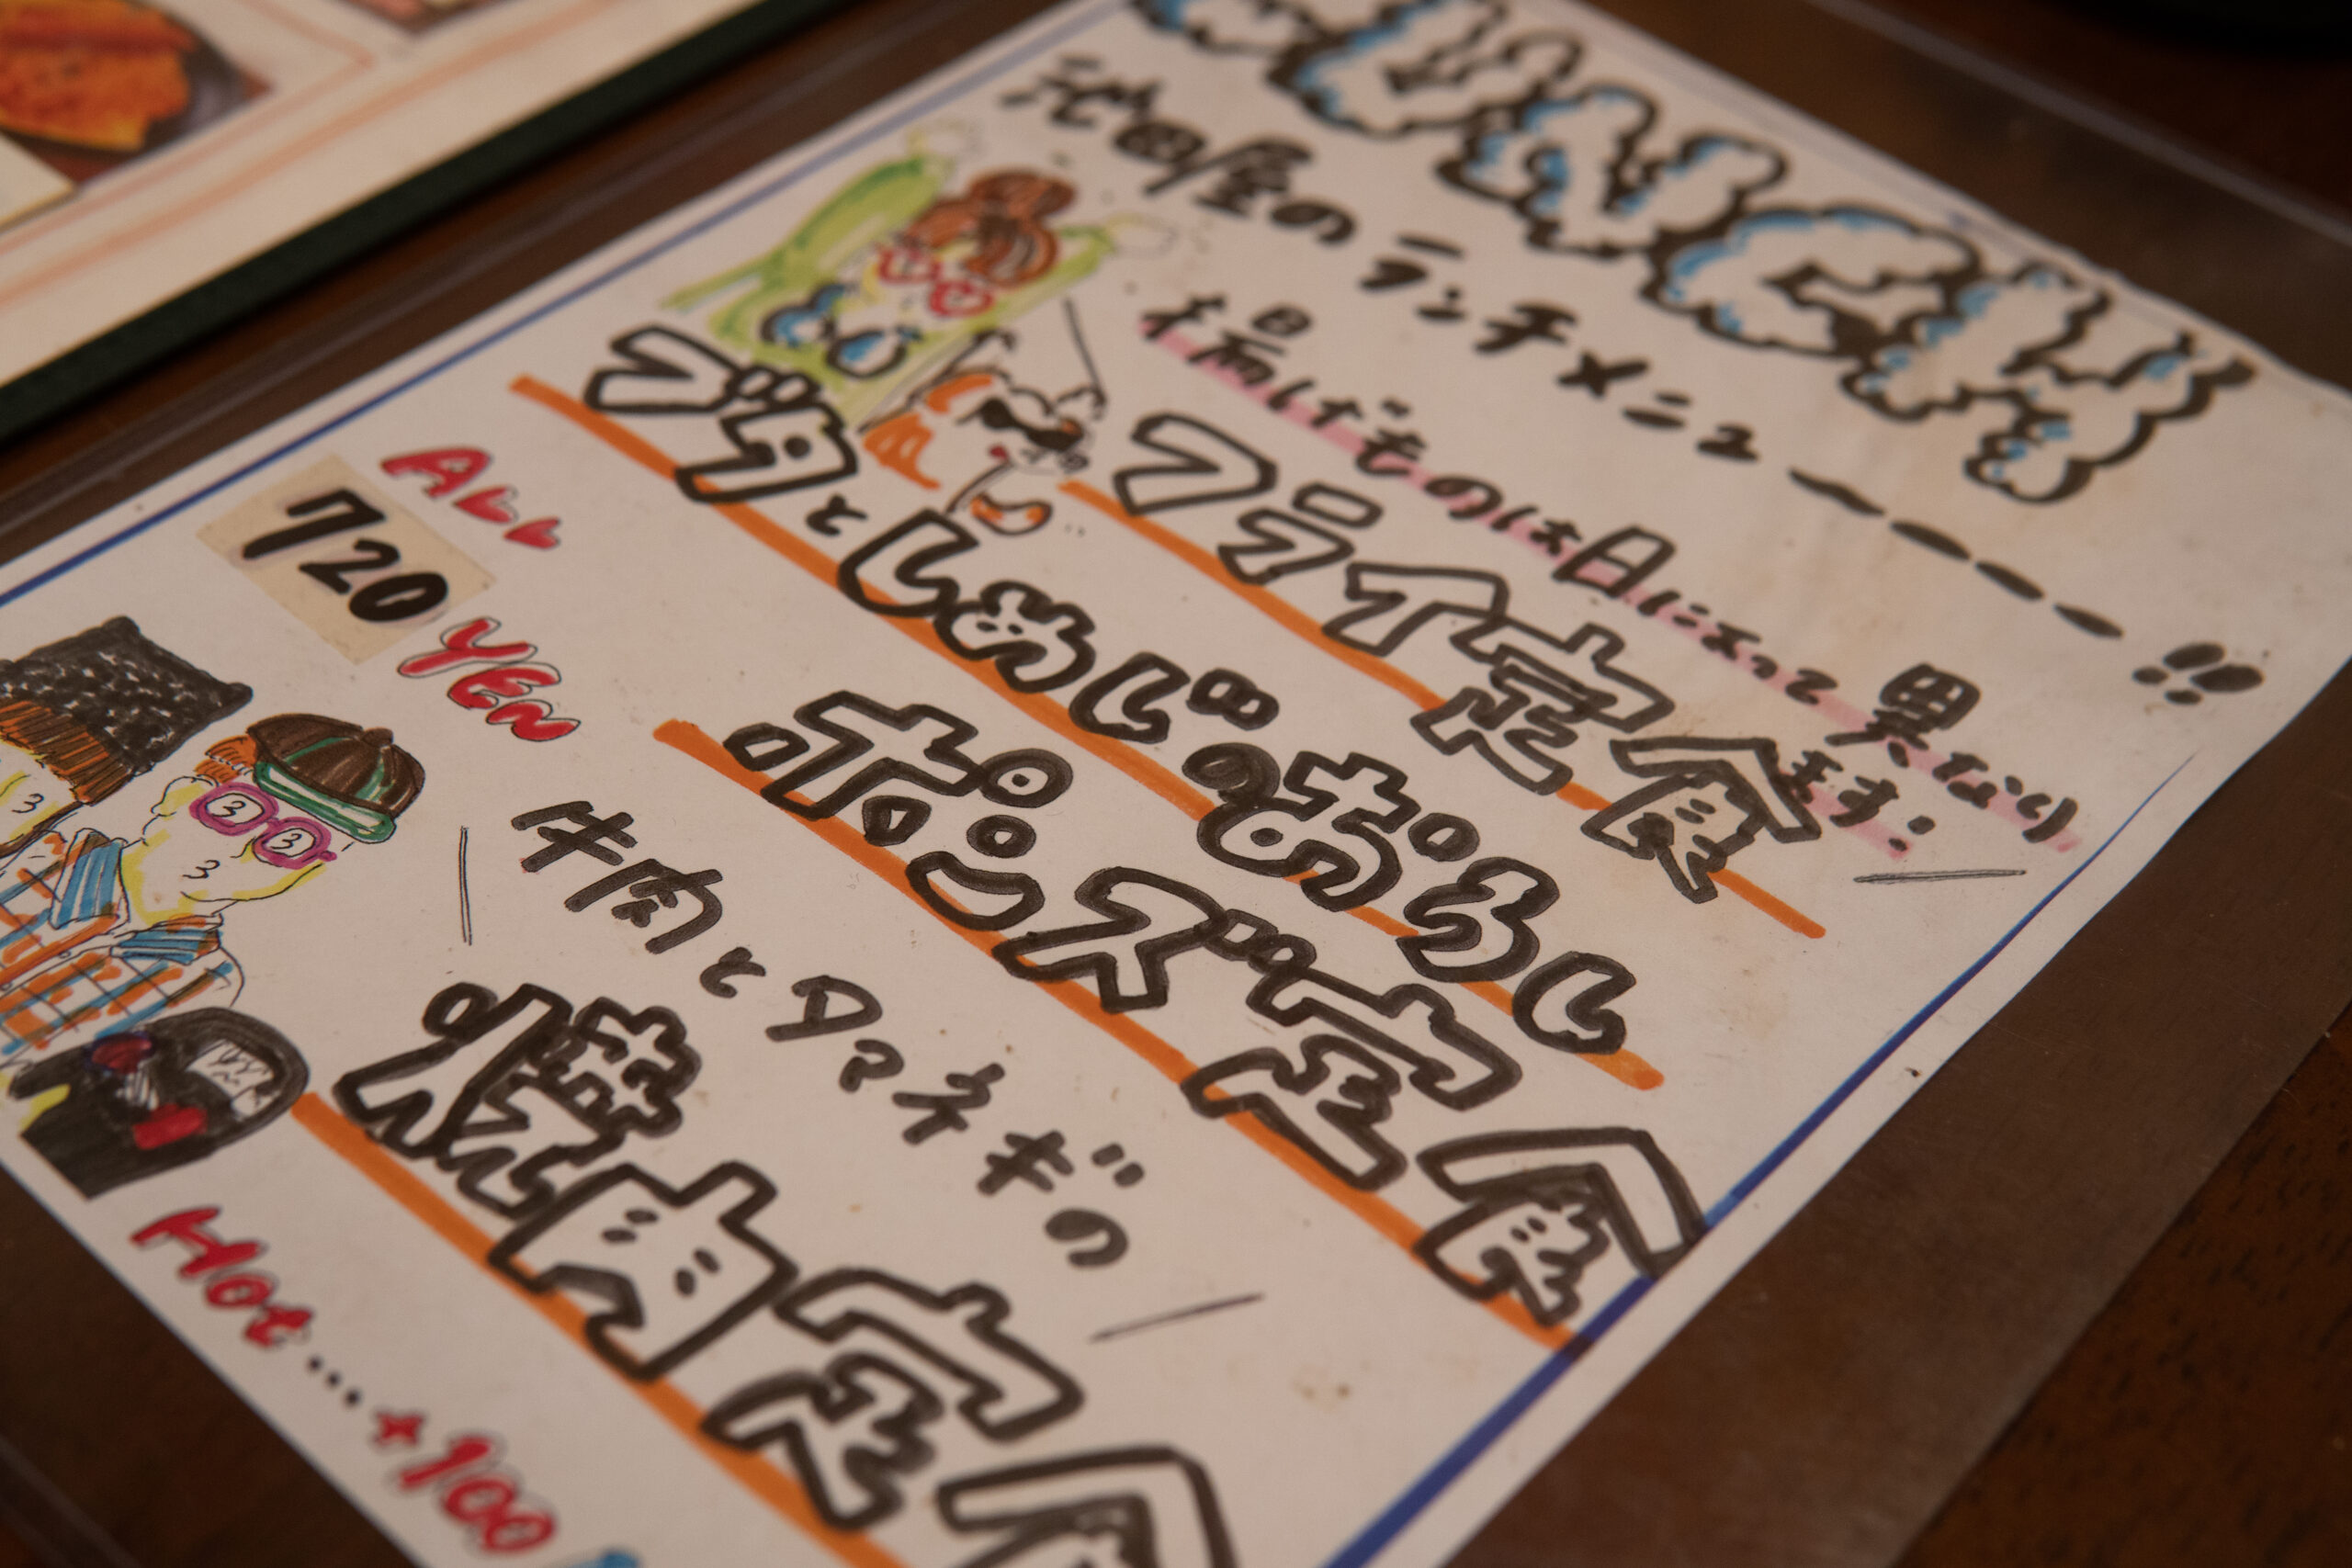 LUNCH
池田屋のランチメニュー ー ー ー ー !!
揚げものは日によって異なり
ます!
フライ定食
ブタとしめじのおろし
ポンズ定食
ALL
720
YEN
牛肉とタマネギの
焼肉定食
Hot…+100